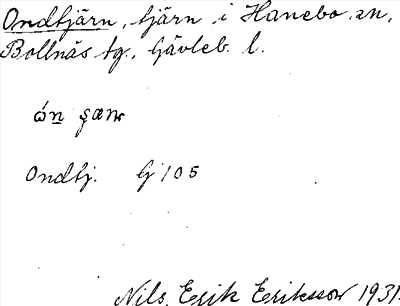 Ondtjärn, tjärn i Hanebo sn,
Bollnäs tg., Gävleb. l.
Ondtj. G 105
Nils Erik Eriksson 1931.